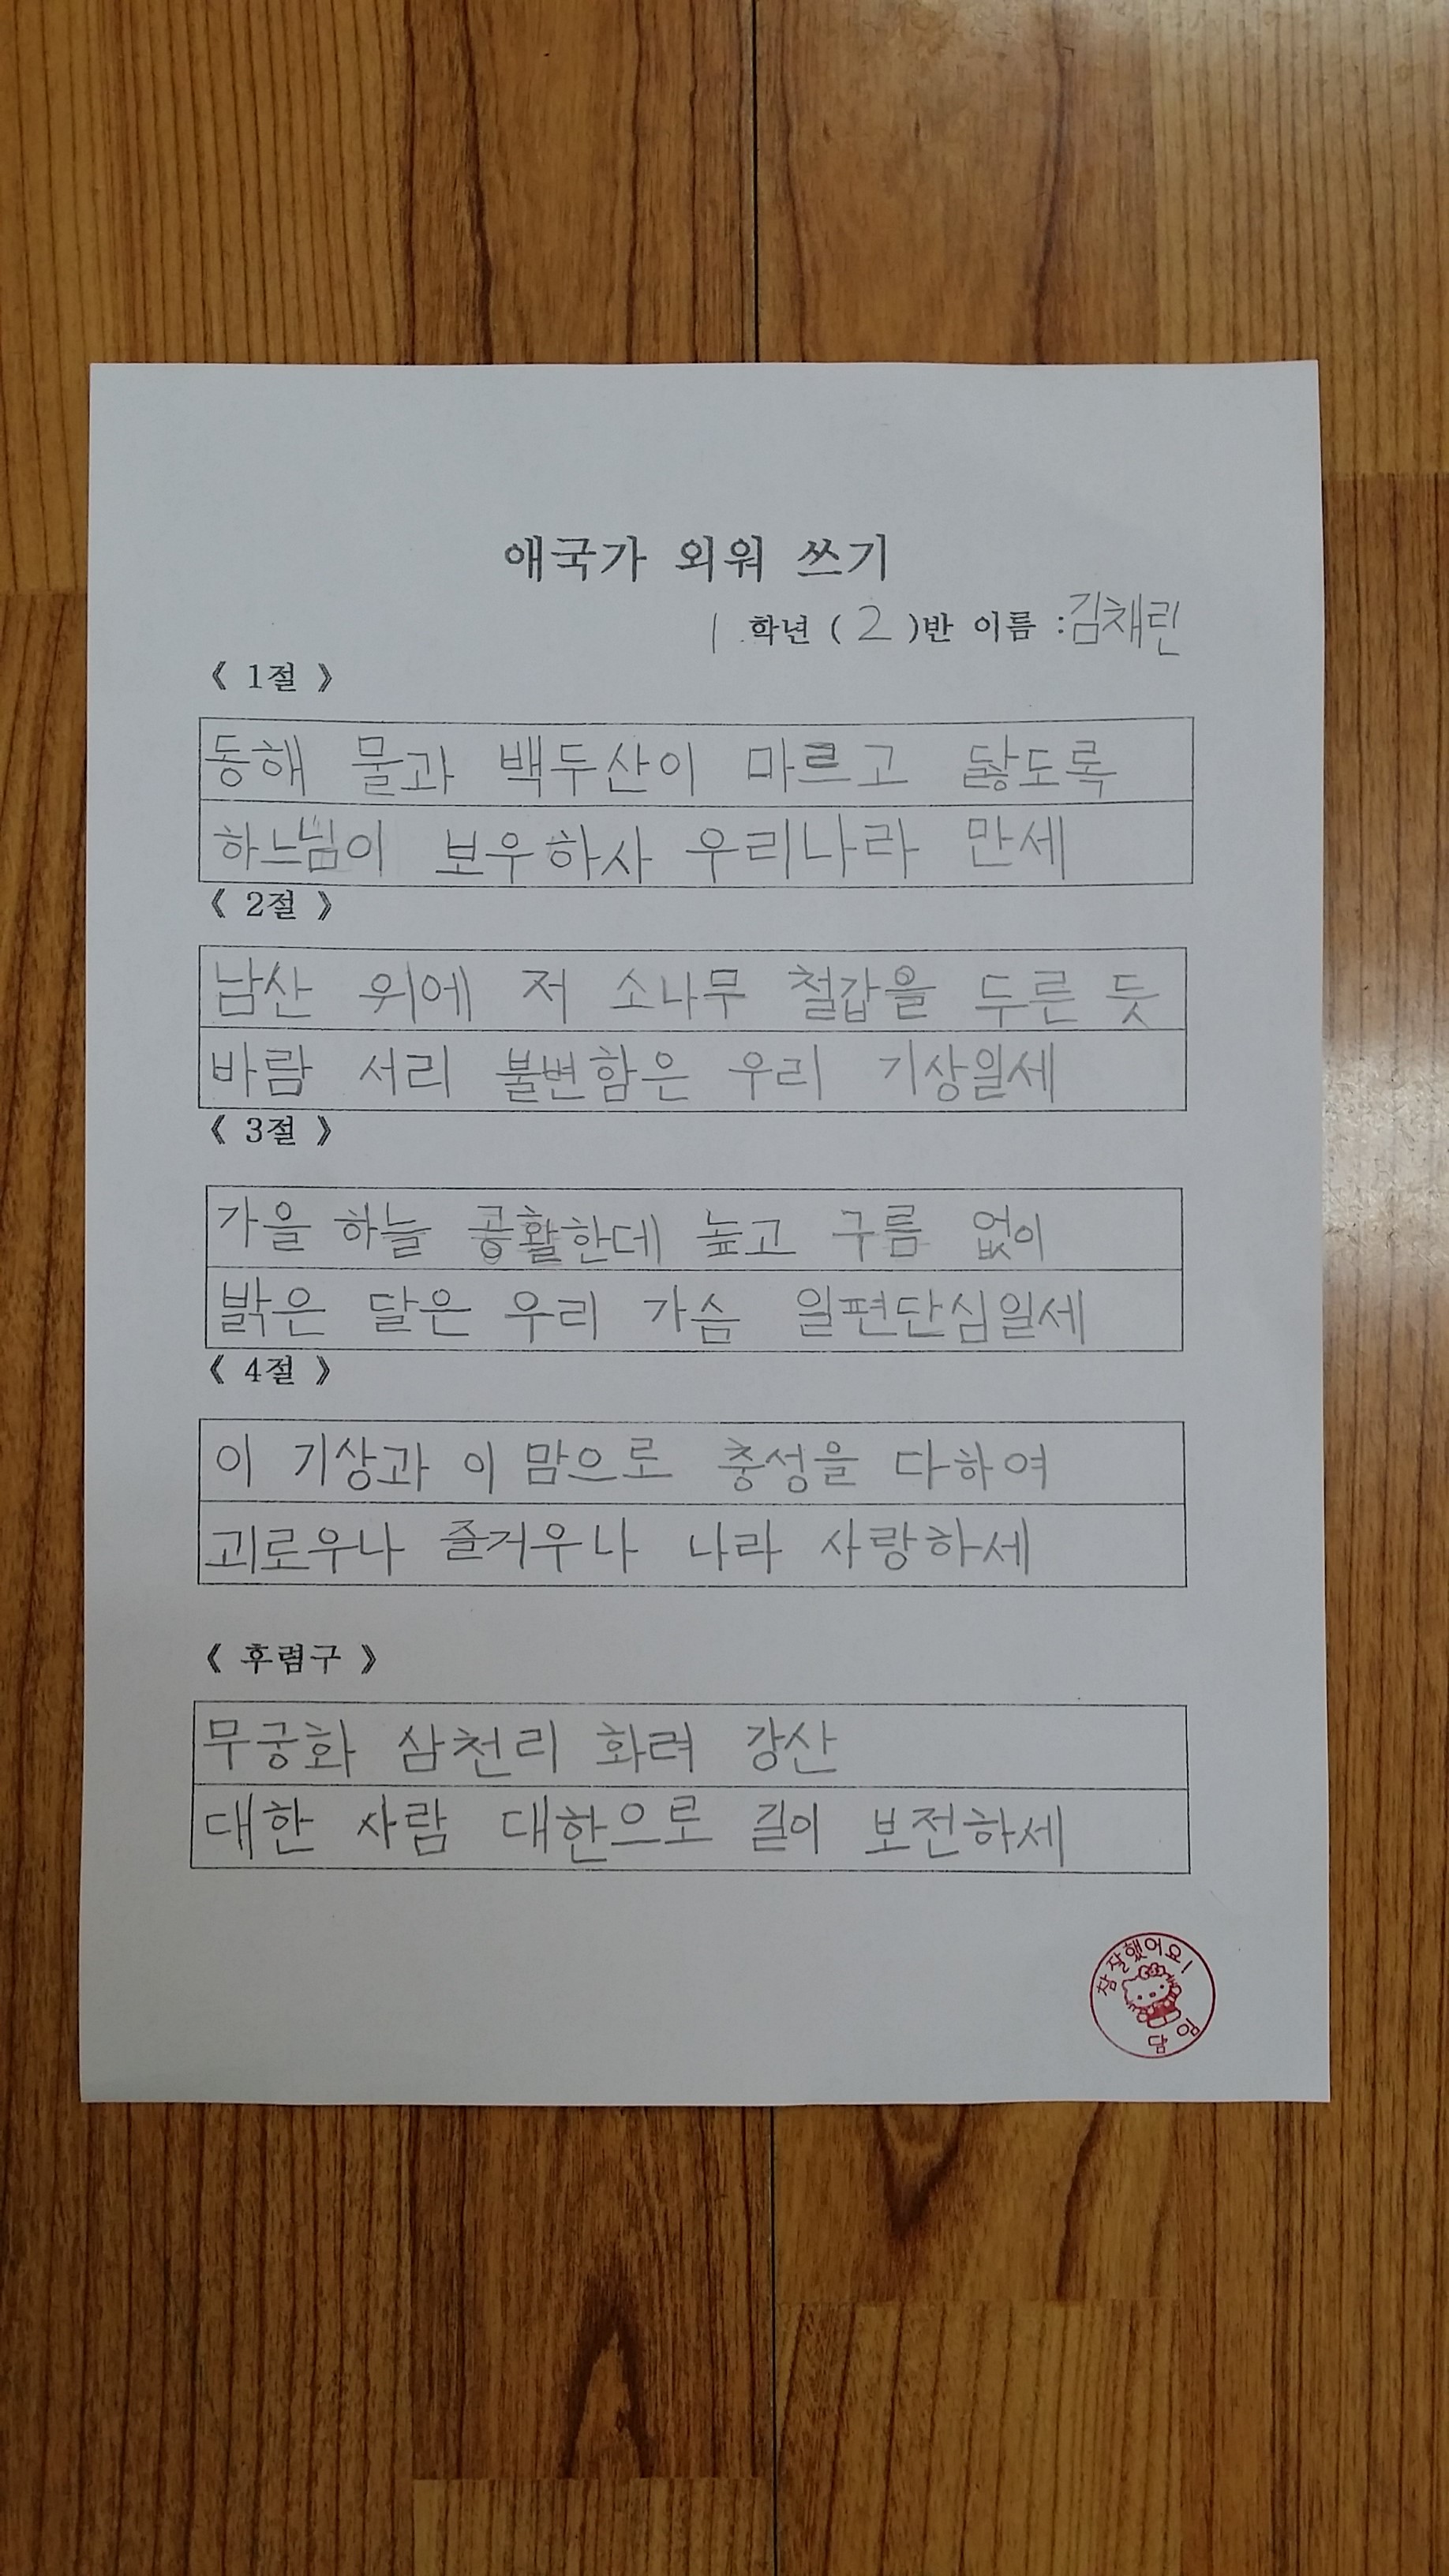 애국가 외워 쓰기
1 학년 ( 2 )반 이름 : 김채린
《 1절 》
동해 물과 백두산이 마르고 닳도록
하느님이 보우하사 우리나라 만세
《 2절 》
남산 위에 저 소나무 철갑을 두른 듯
바람 서리 불변함은 우리 기상일세
《 3절 》
가을 하늘 공활한데 높고 구름 없이
밝은 달은 우리 가슴 일편단심일세
《 4절 》
이 기상과 이 맘으로 충성을 다하여
괴로우나 즐거우나 나라 사랑하세
《 후렴구 》
무궁화 삼천리 화려 강산
대한 사람 대한으로 길이 보전하세
참 잘했어요!
담임